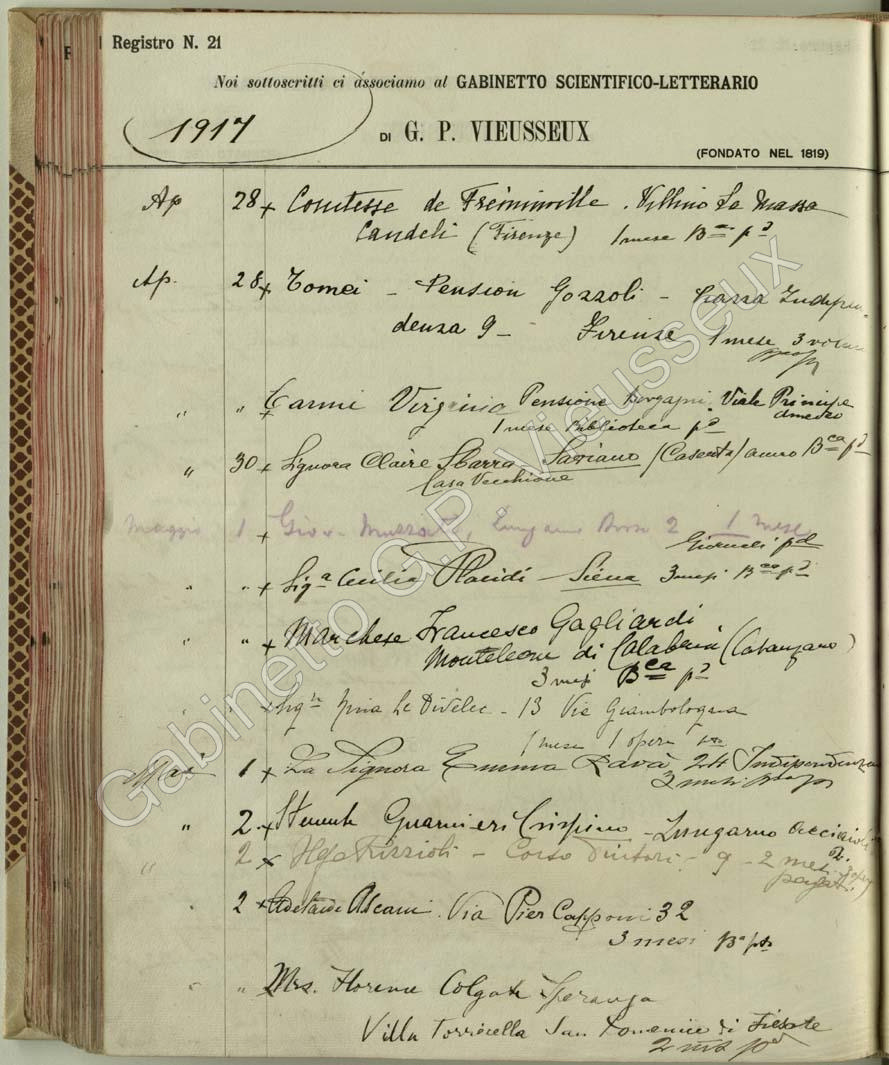 Registro N. 21
Noi sottoscritti ci associamo al GABINETTO SCIENTIFICO-LETTERARIO
1917
DI G. P. VIEUSSEUX
(FONDATO NEL 1819)
Ap 28 x Comtesse de Fréminville. Villino La Massa
Candeli (Firenze) 1 mese Bca pd
Ap. 28 x Tomei - Pension Gozzoli - Piazza Indipen-
denza 9 - Firenze 1 mese 3 volumi
" " x Carmi Virginio Pensione Viale Principe
Amedeo
1 mese Biblioteca pd
" 30 x Signora Claire Sbarra Saviano (Caserta) anno Bca pd
Casa Vecchione
Maggio 1 x Giov. Lungarno 2 1 mese
Giornali pd
" " x Siga Cecilia Placidi - Siena 3 mesi Bca pd
" " x Marchese Francesco Gagliardi
Monteleone di Calabria (Catanzaro)
3 mesi Bca pd
" " x Nina Le Divelec - 13 Via Giambologna
1 mese 1 opera
1 x La Signora Emma Ravà 24 Indipendenza
3 mesi
" 2 x Guarnieri Crispino - Lungarno Acciaioli
" 2 x Frizzioli - Corso Tintori - 9 - 2 mesi
2 x Adelaide Ascani. Via Pier Capponi 32
3 mesi
" " Mrs. Florence Colgate Speranza
Villa Torricella San Domenico di Fiesole
2 pd
Gabinetto G.P. Vieusseux